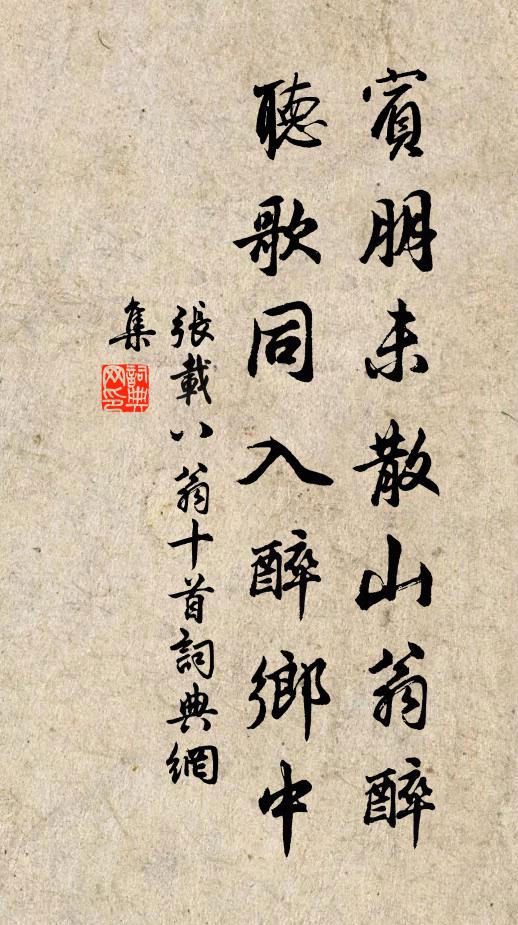 賓朋未散山翁醉
聽歌同入醉鄉中
張載八翁十首詞典網
集
詞典網印